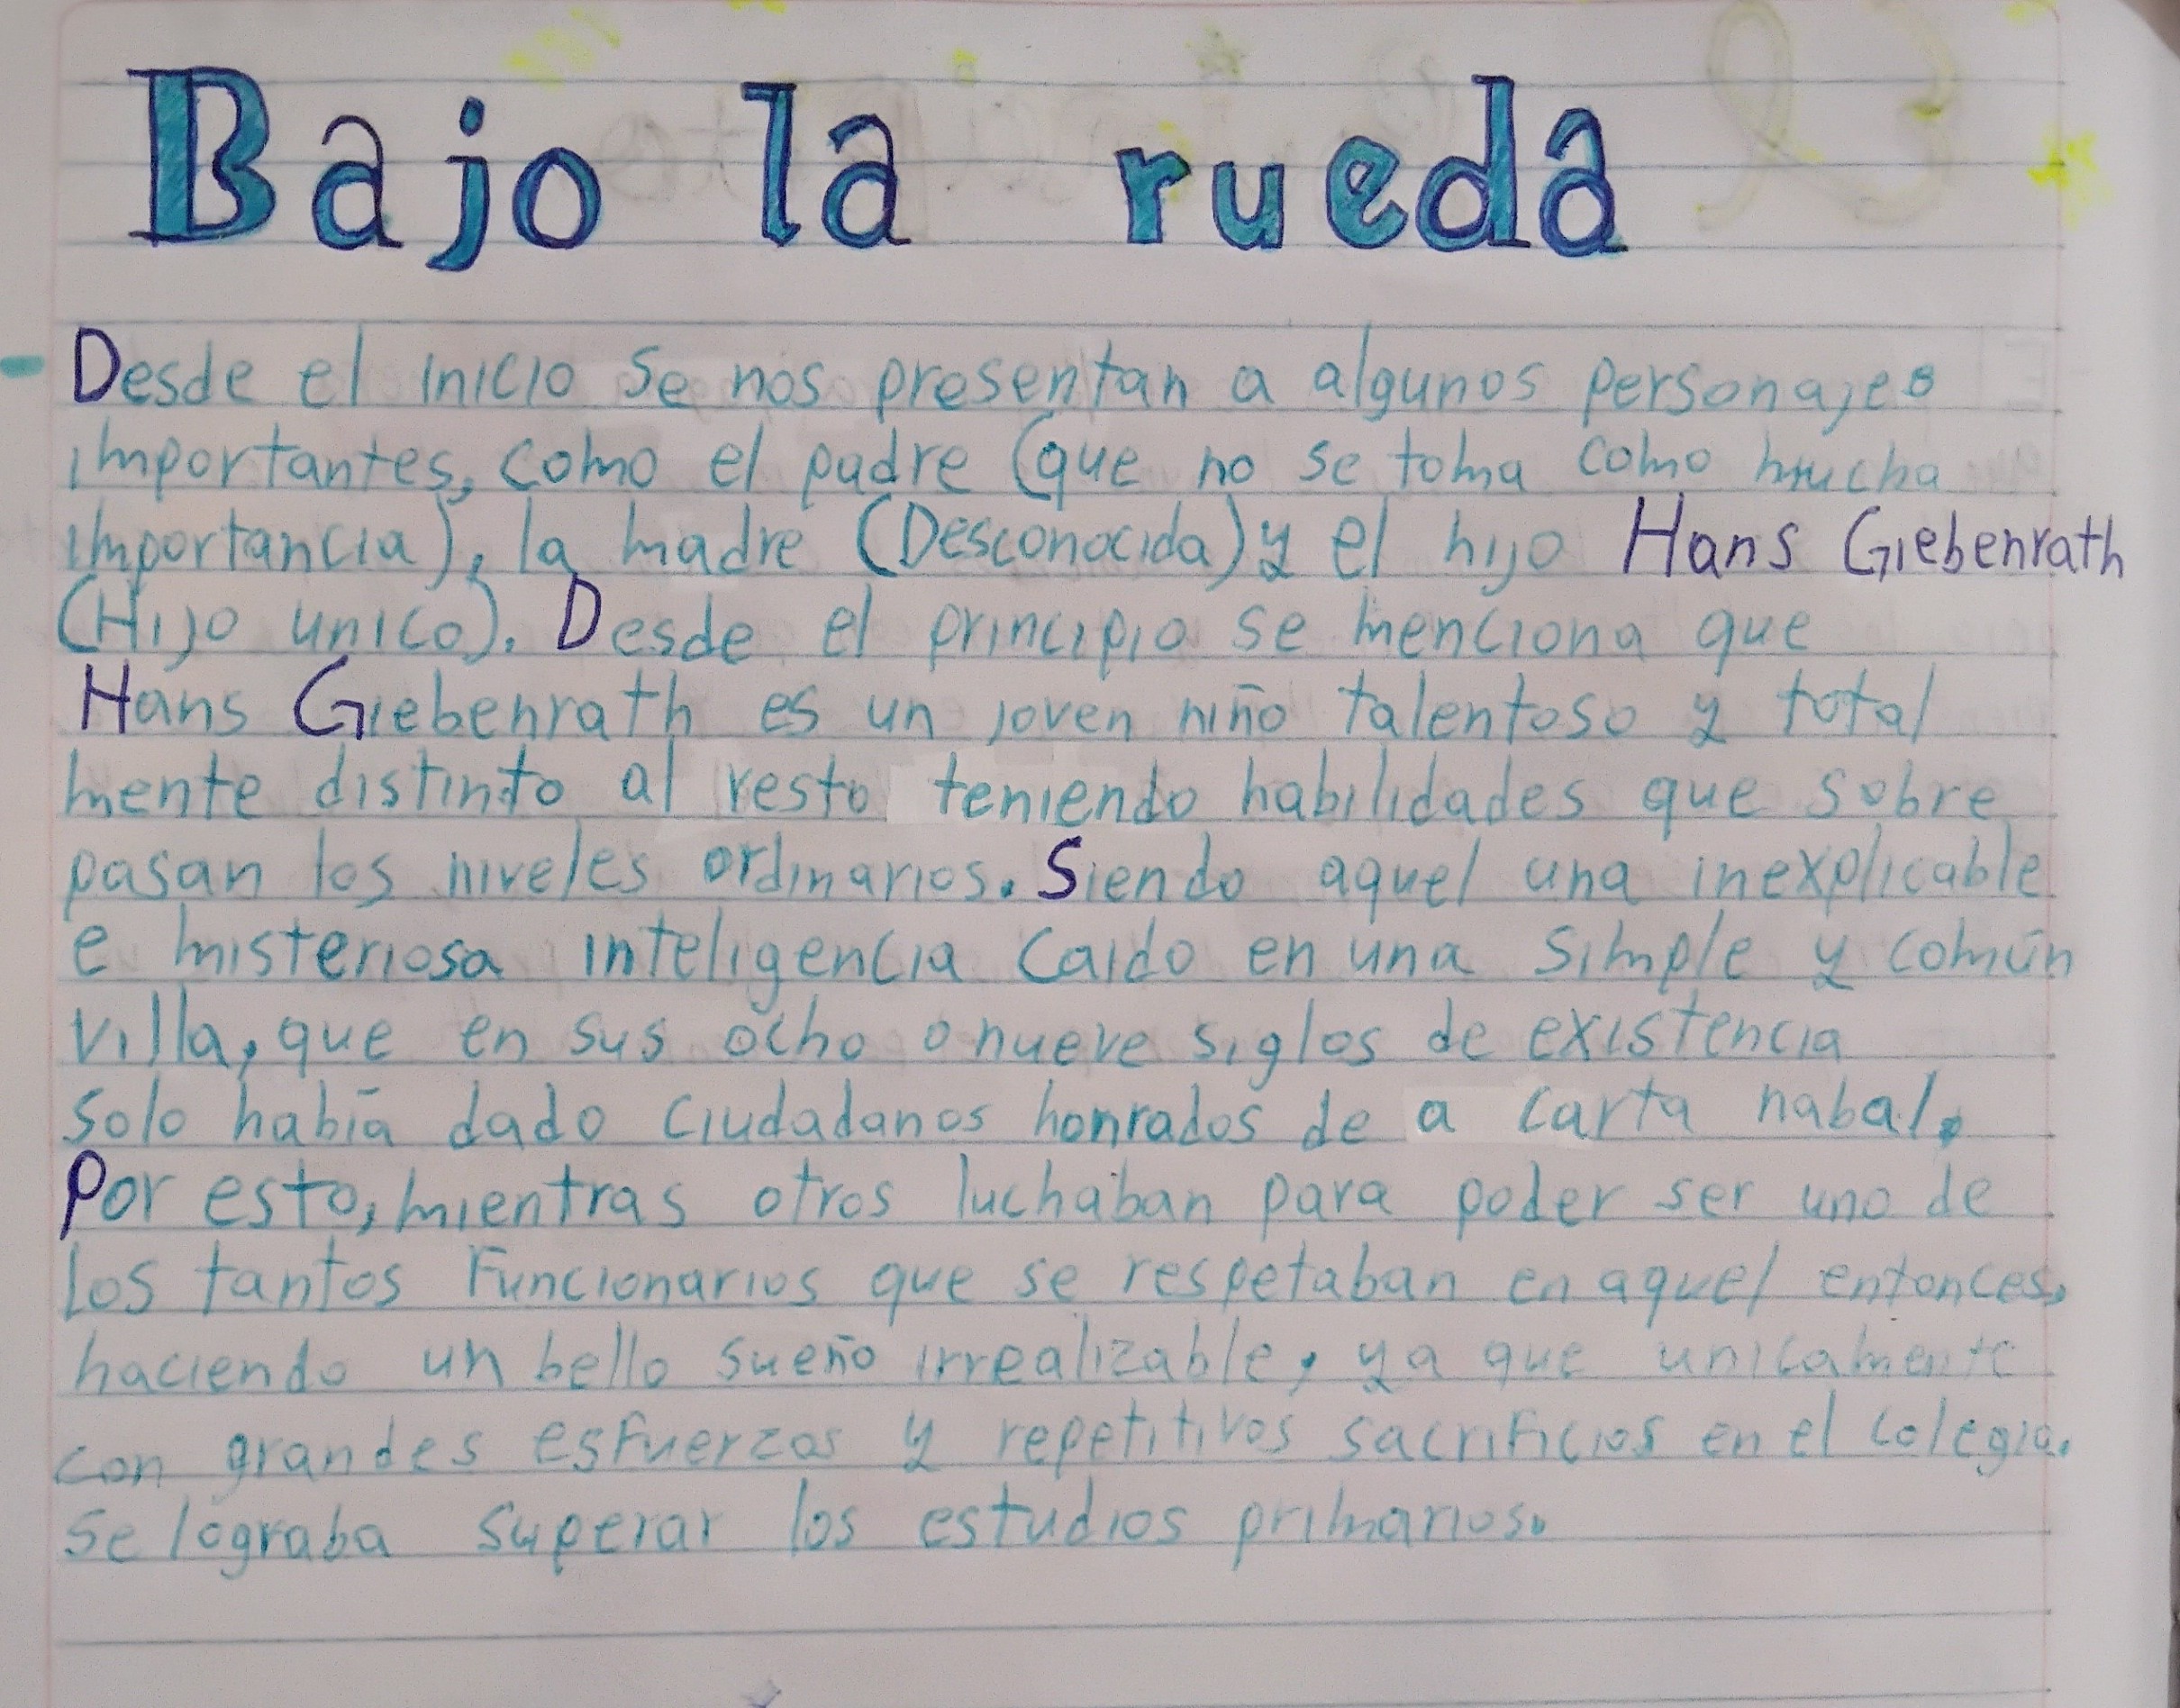 Bajo la rueda
- Desde el inicio se nos presentan a algunos personajes
importantes, como el padre (que no se toma como mucha
importancia), la madre (Desconocida) y el hijo Hans Giebenrath
(Hijo unico). Desde el principio se menciona que
Hans Giebenrath es un joven niño talentoso y total
mente distinto al resto teniendo habilidades que sobre
pasan los niveles ordinarios. Siendo aquel una inexplicable
e misteriosa inteligencia caido en una simple y común
villa, que en sus ocho o nueve siglos de existencia
solo había dado ciudadanos honrados de a carta nabal.
Por esto, mientras otros luchaban para poder ser uno de
los tantos Funcionarios que se respetaban en aquel entonces,
haciendo un bello sueño irrealizable, ya que unicamente
con grandes esfuerzos y repetitivos sacrificios en el colegio.
Se lograba superar los estudios primarios.